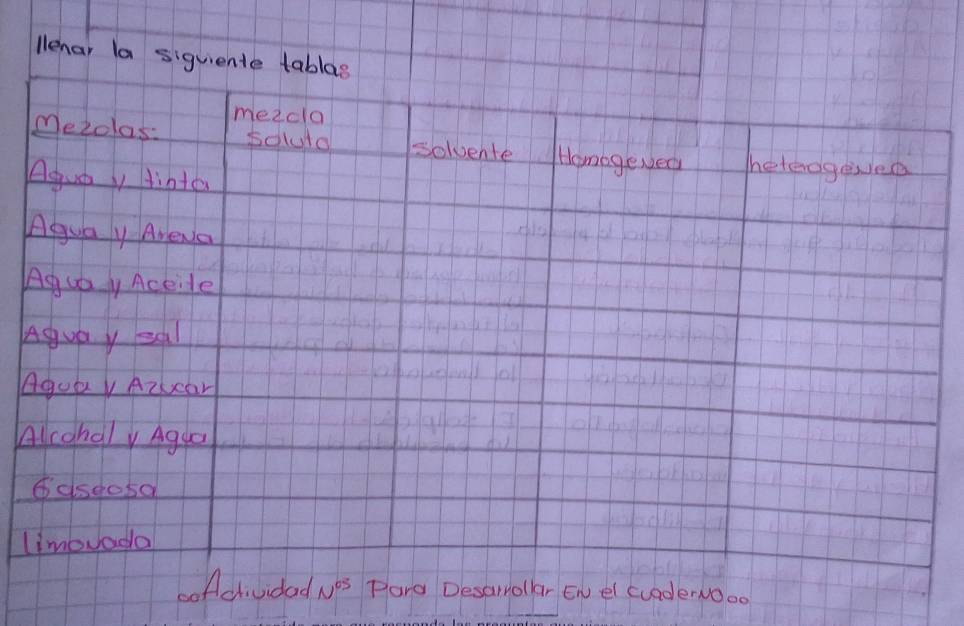 llenar la siguiente tablas
Mezclas: mezcla soluto solvente Homogenea heteogenea
Agua y tinta
Agua y Arena
Agua y Aceite
Agua y sal
Agua y Azucar
Alcohol y Agua
Gaseosa
limonada
Actividad Nos Para Desarrollar En el cuaderno